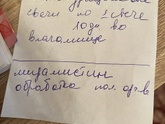 свечи по 1 свече
2 раза во
влагалище
мирамистин
обработка пол. орг-в